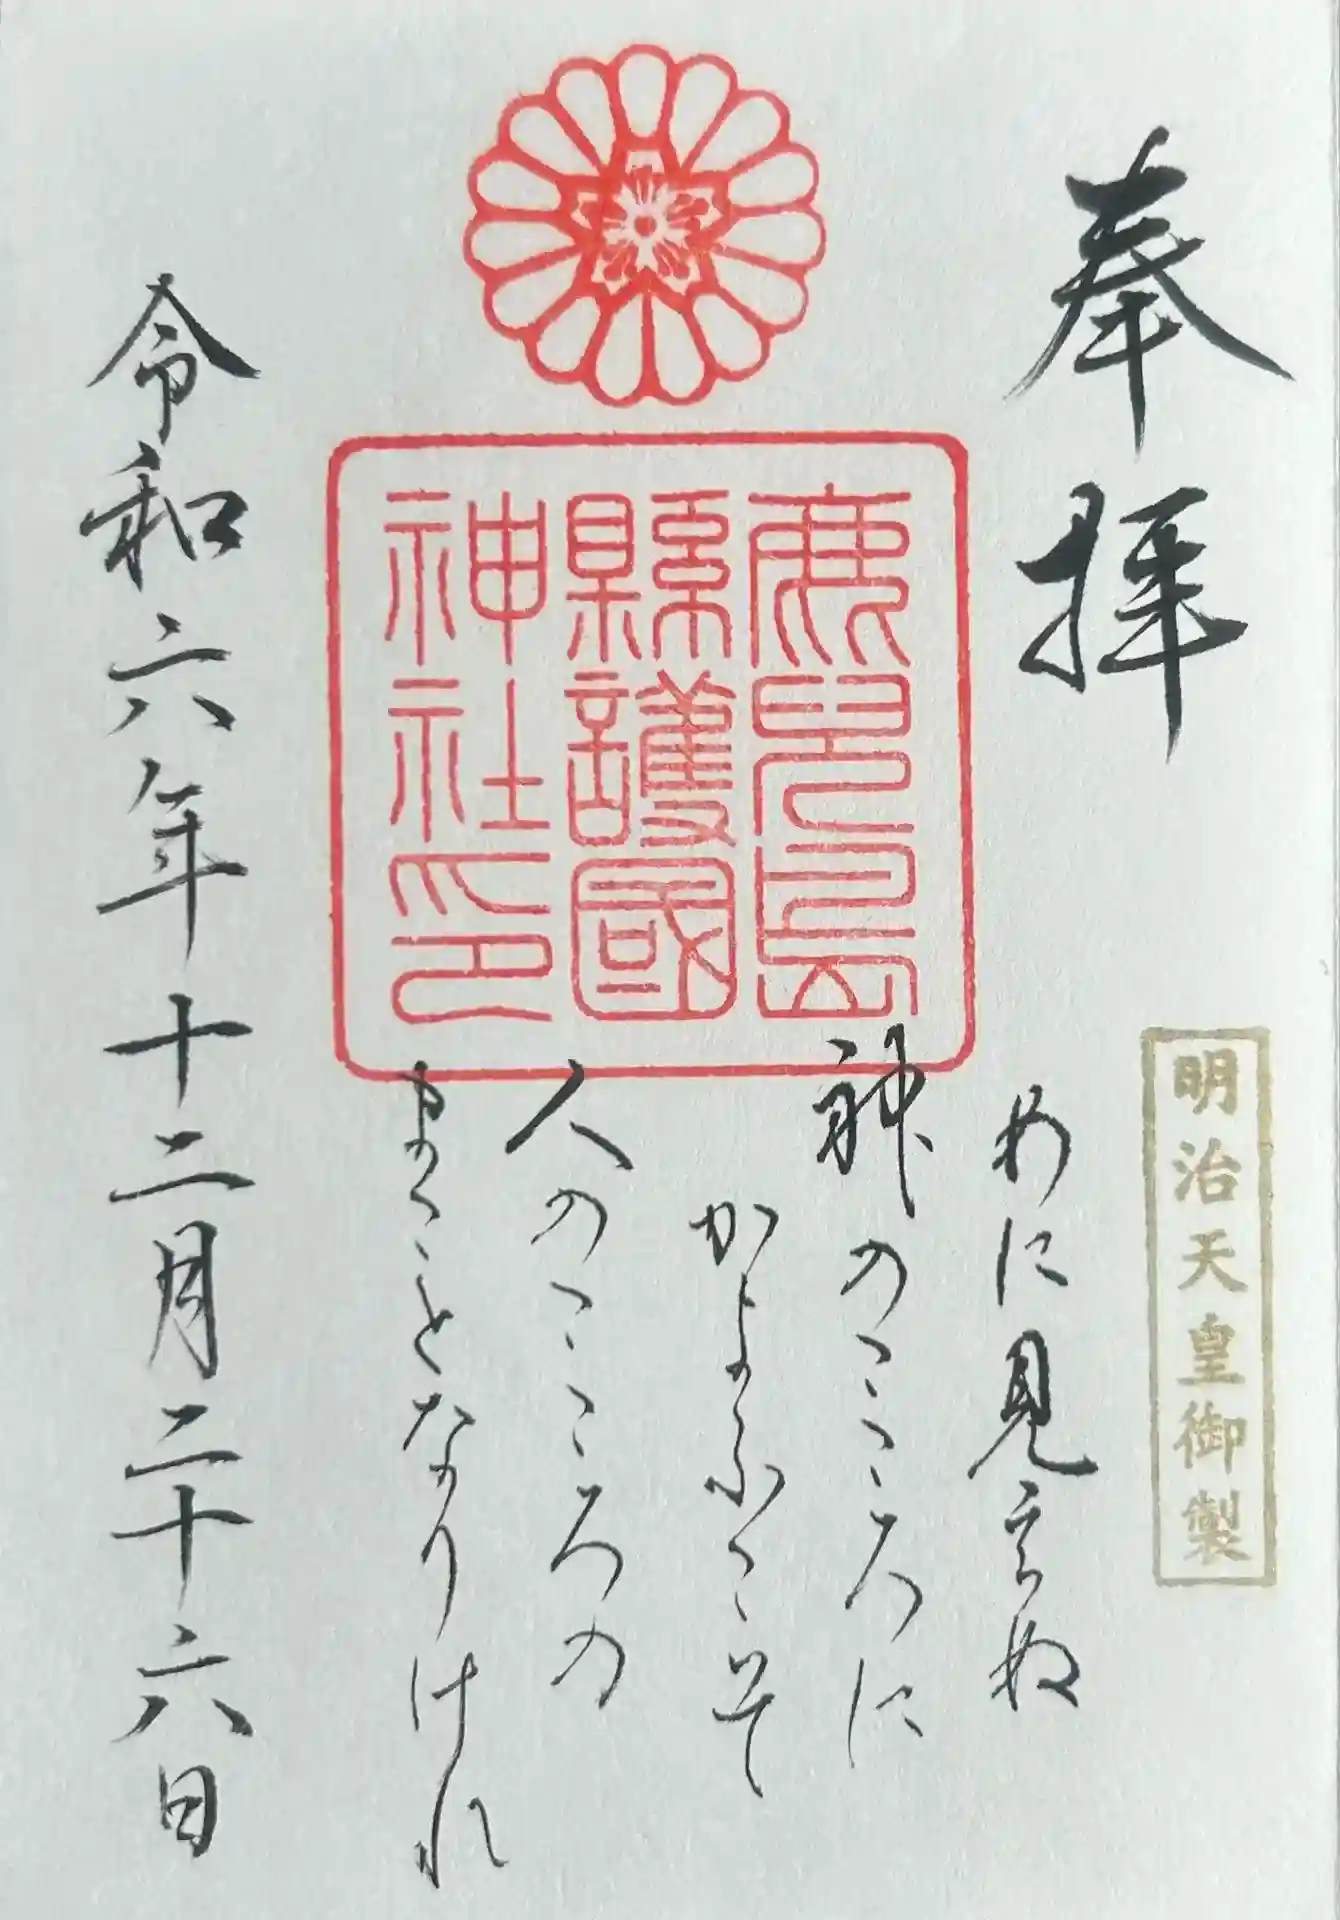 奉拝
明治天皇御製
めに見えぬ
神のこころに
かよふこそ
人のこころの
まことなりけれ
鹿兒島
縣護國
神社印
令和六年十二月二十六日